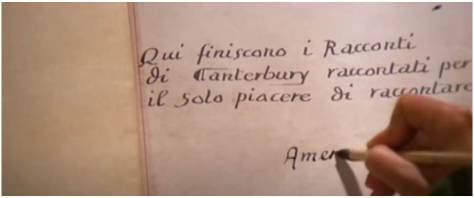 Qui finiscono i Racconti
di Canterbury raccontati per
il solo piacere di raccontare
Amen